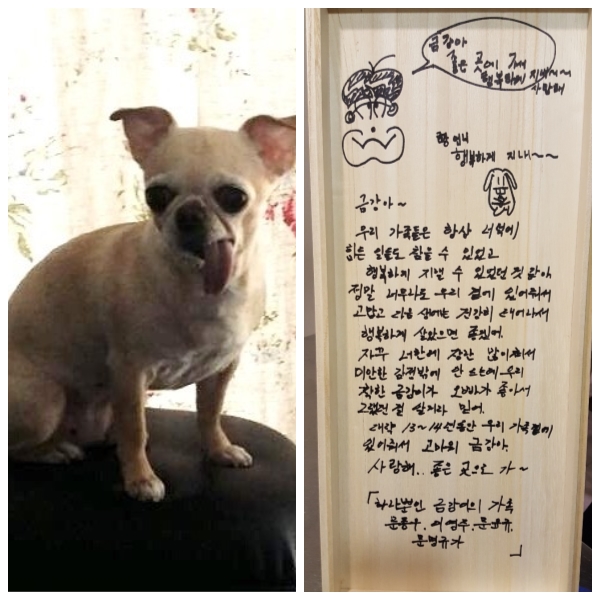 금강아
좋은 곳에 가서
행복하게 지내~~
사랑해
행복하게 지내~~
금강아~
우리 가족들은 항상 너 덕에
힘든 일들도 참을 수 있었고
행복하게 지낼 수 있었던 것 같아
정말 너무나도 우리 곁에 있어줘서
고맙고 다음 생에는 건강히 태어나서
행복하게 살았으면 좋겠어.
자꾸 너한테 장난 많이쳐서
미안한 감정밖에 안 드는데 우리
착한 금강이가 오빠가 좋아서
그랬던 걸 알거라 믿어.
대략 13~14년동안 우리 가족곁에
있어줘서 고마워 금강아.
사랑해.. 좋은 곳으로 가~
「하나뿐인 금강이의 가족
문종우, 이영주, 문
문명규가 」